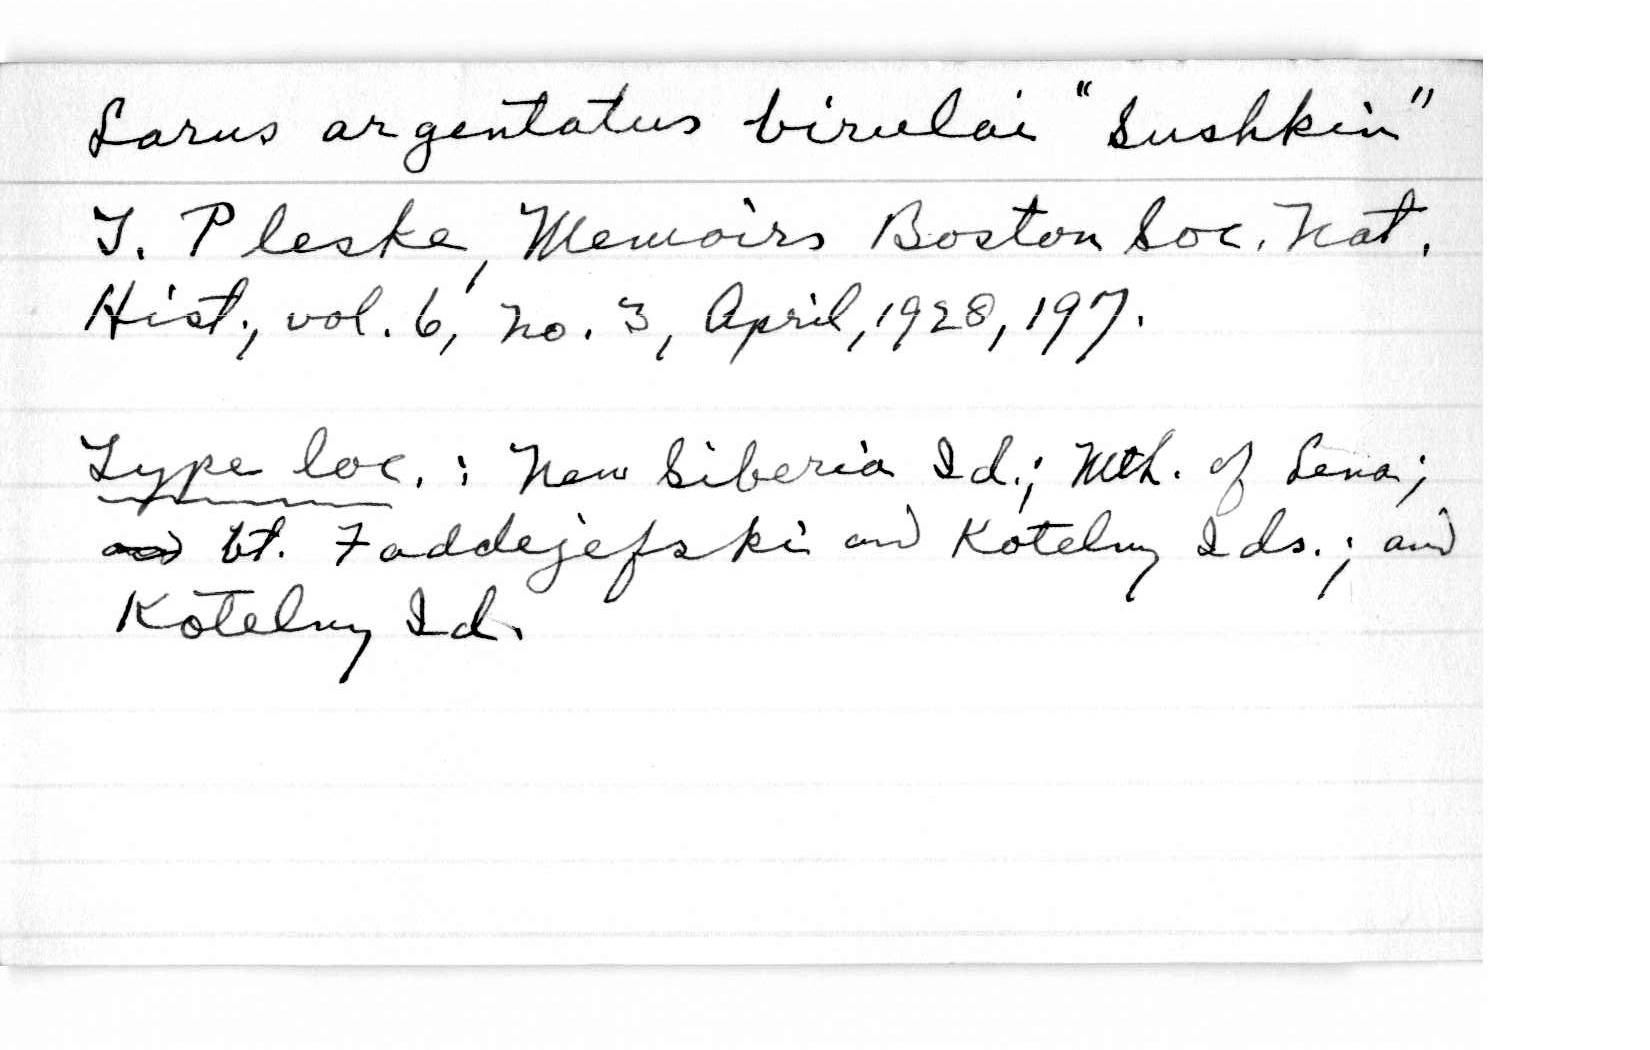 Larus argentatus birulai "Sushkin"
T. Pleske, Memoirs Boston Soc. Nat.
Hist., vol. 6, no. 3, April, 1928, 197.
Type loc.: New Siberia Id.; Mth. of Lena;
bt. Faddejefski and Kotelny Ids.; and
Kotelny Id.